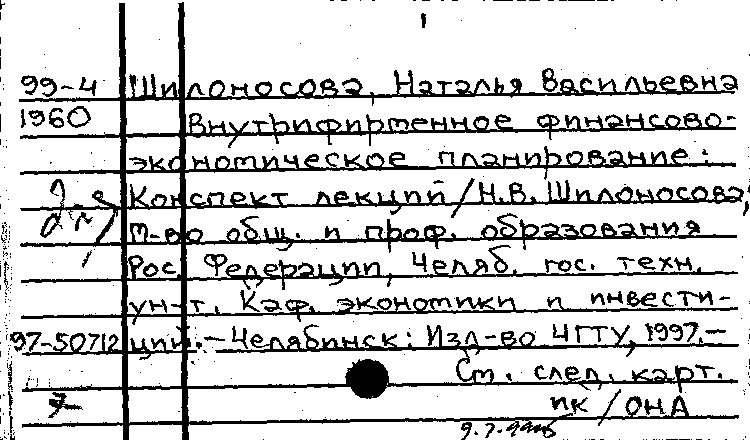 1
99-4 Шилоносова, Наталья Васильевна
1960 Внутрифирменное финансово-
экономическое планирование:
Конспект лекций / Н.В. Шилоносова;
М-во общ. и проф. образования
Рос. Федерации, Челяб. гос. техн.
ун-т. Каф. экономики и инвести-
97-50712 ций. - Челябинск: Изд-во ЧГТУ, 1997. -
См. след. карт.
7 пк / ОНА